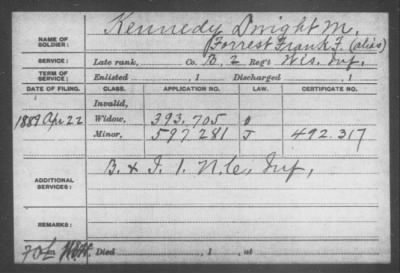 NAME OF SOLDIER: Kennedy Dwight M.
(Forrest Frank F. (alias)
SERVICE: Late rank, Co. B, 2 Reg't Wis. Inf.,
TERM OF SERVICE: Enlisted , 1 Discharged , 1
DATE OF FILING. CLASS. APPLICATION NO. LAW. CERTIFICATE NO.
Invalid,
1889 Apr 22 Widow, 393.705
Minor, 597.281 J 492.317
ADDITIONAL SERVICES: B. & I. 1. N.C. Inf,
REMARKS:
Died , 1 , at